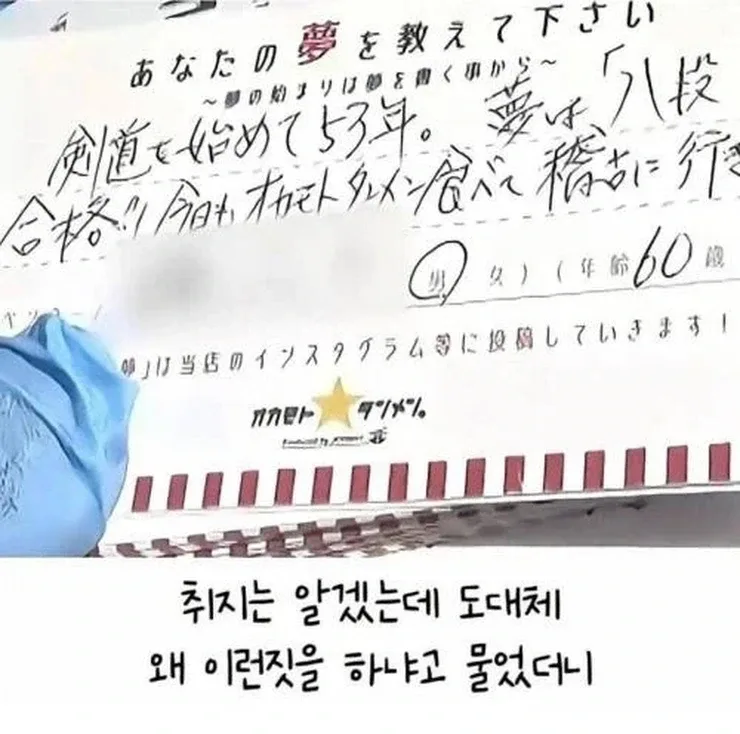 あなたの夢を教えて下さい
～夢の始まりは夢を書く事から～
剣道を始めて53年。夢は、「八段
合格!! 今日も オカモトタンメン食べて 稽古に 行き
男 女)(年齢60歳
夢」は当店のインスタグラム等に投稿していきます!
オカモト タンメン。
Produced by
취지는 알겠는데 도대체
왜 이런짓을 하냐고 물었더니